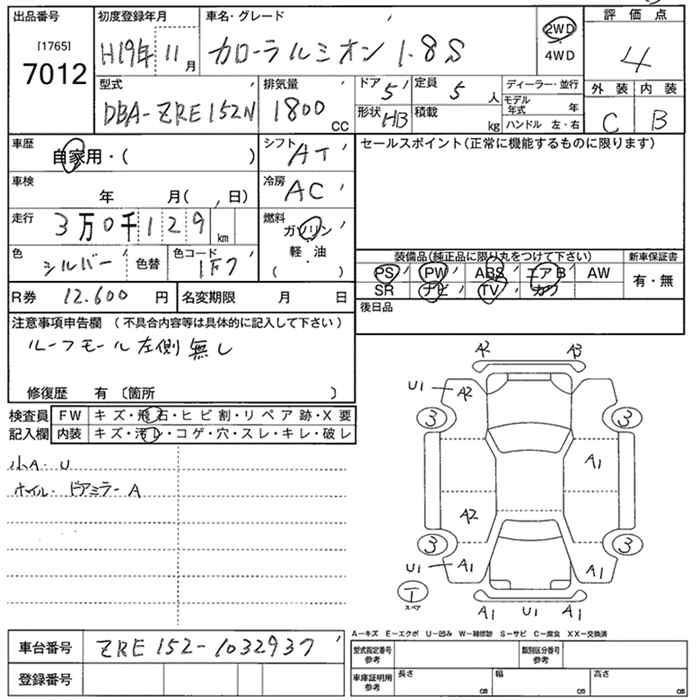 出品番号 初度登録年月 車名・グレード 評価点
[1765] 7012 H19年 11月 カローラルミオン 1.8S 2WD 4WD 4
型式 排気量 ドア 5 定員 5人 ディーラー・並行 外装 内装
DBA-ZRE152N 1800 cc 形状 HB 積載 kg モデル年式 年 C B
ハンドル 左・右
車歴 自家用・( ) シフト AT セールスポイント(正常に機能するものに限ります)
車検 年 月( 、 日) 冷房 AC
走行 3万0千129km 燃料 ガソリン
軽・油
( ・ )
色 シルバー 色替 色コード 1F7 装備品(純正品に限り丸をつけて下さい) 新車保証書
PS PW ABS エアB AW 有・無
R券 12.600 円 名変期限 月 日 SR ナビ TV カワ
後日品
注意事項申告欄 (不具合内容等は具体的に記入して下さい)
ルーフモール左側無し
修復歴 有 〔箇所 〕
検査員 FW キズ・飛石・ヒビ割・リペア跡・X要
記入欄 内装 キズ・汚レ・コゲ・穴・スレ・キレ・破レ
小A・U
ホイル・ドアミラーA
A2 A3
U1 A2
3 3
A1
A2
3 3
U1 A1 A1
T
スペア
A1 U1 A1
A−キズ E−エクボ U−凹み W−補修跡 S−サビ C−腐食 XX−交換済
車台番号 ZRE152-1032937 型式指定番号 参考 類別区分番号 参考
登録番号 車庫証明用 参考 長さ cm 幅 cm 高さ cm